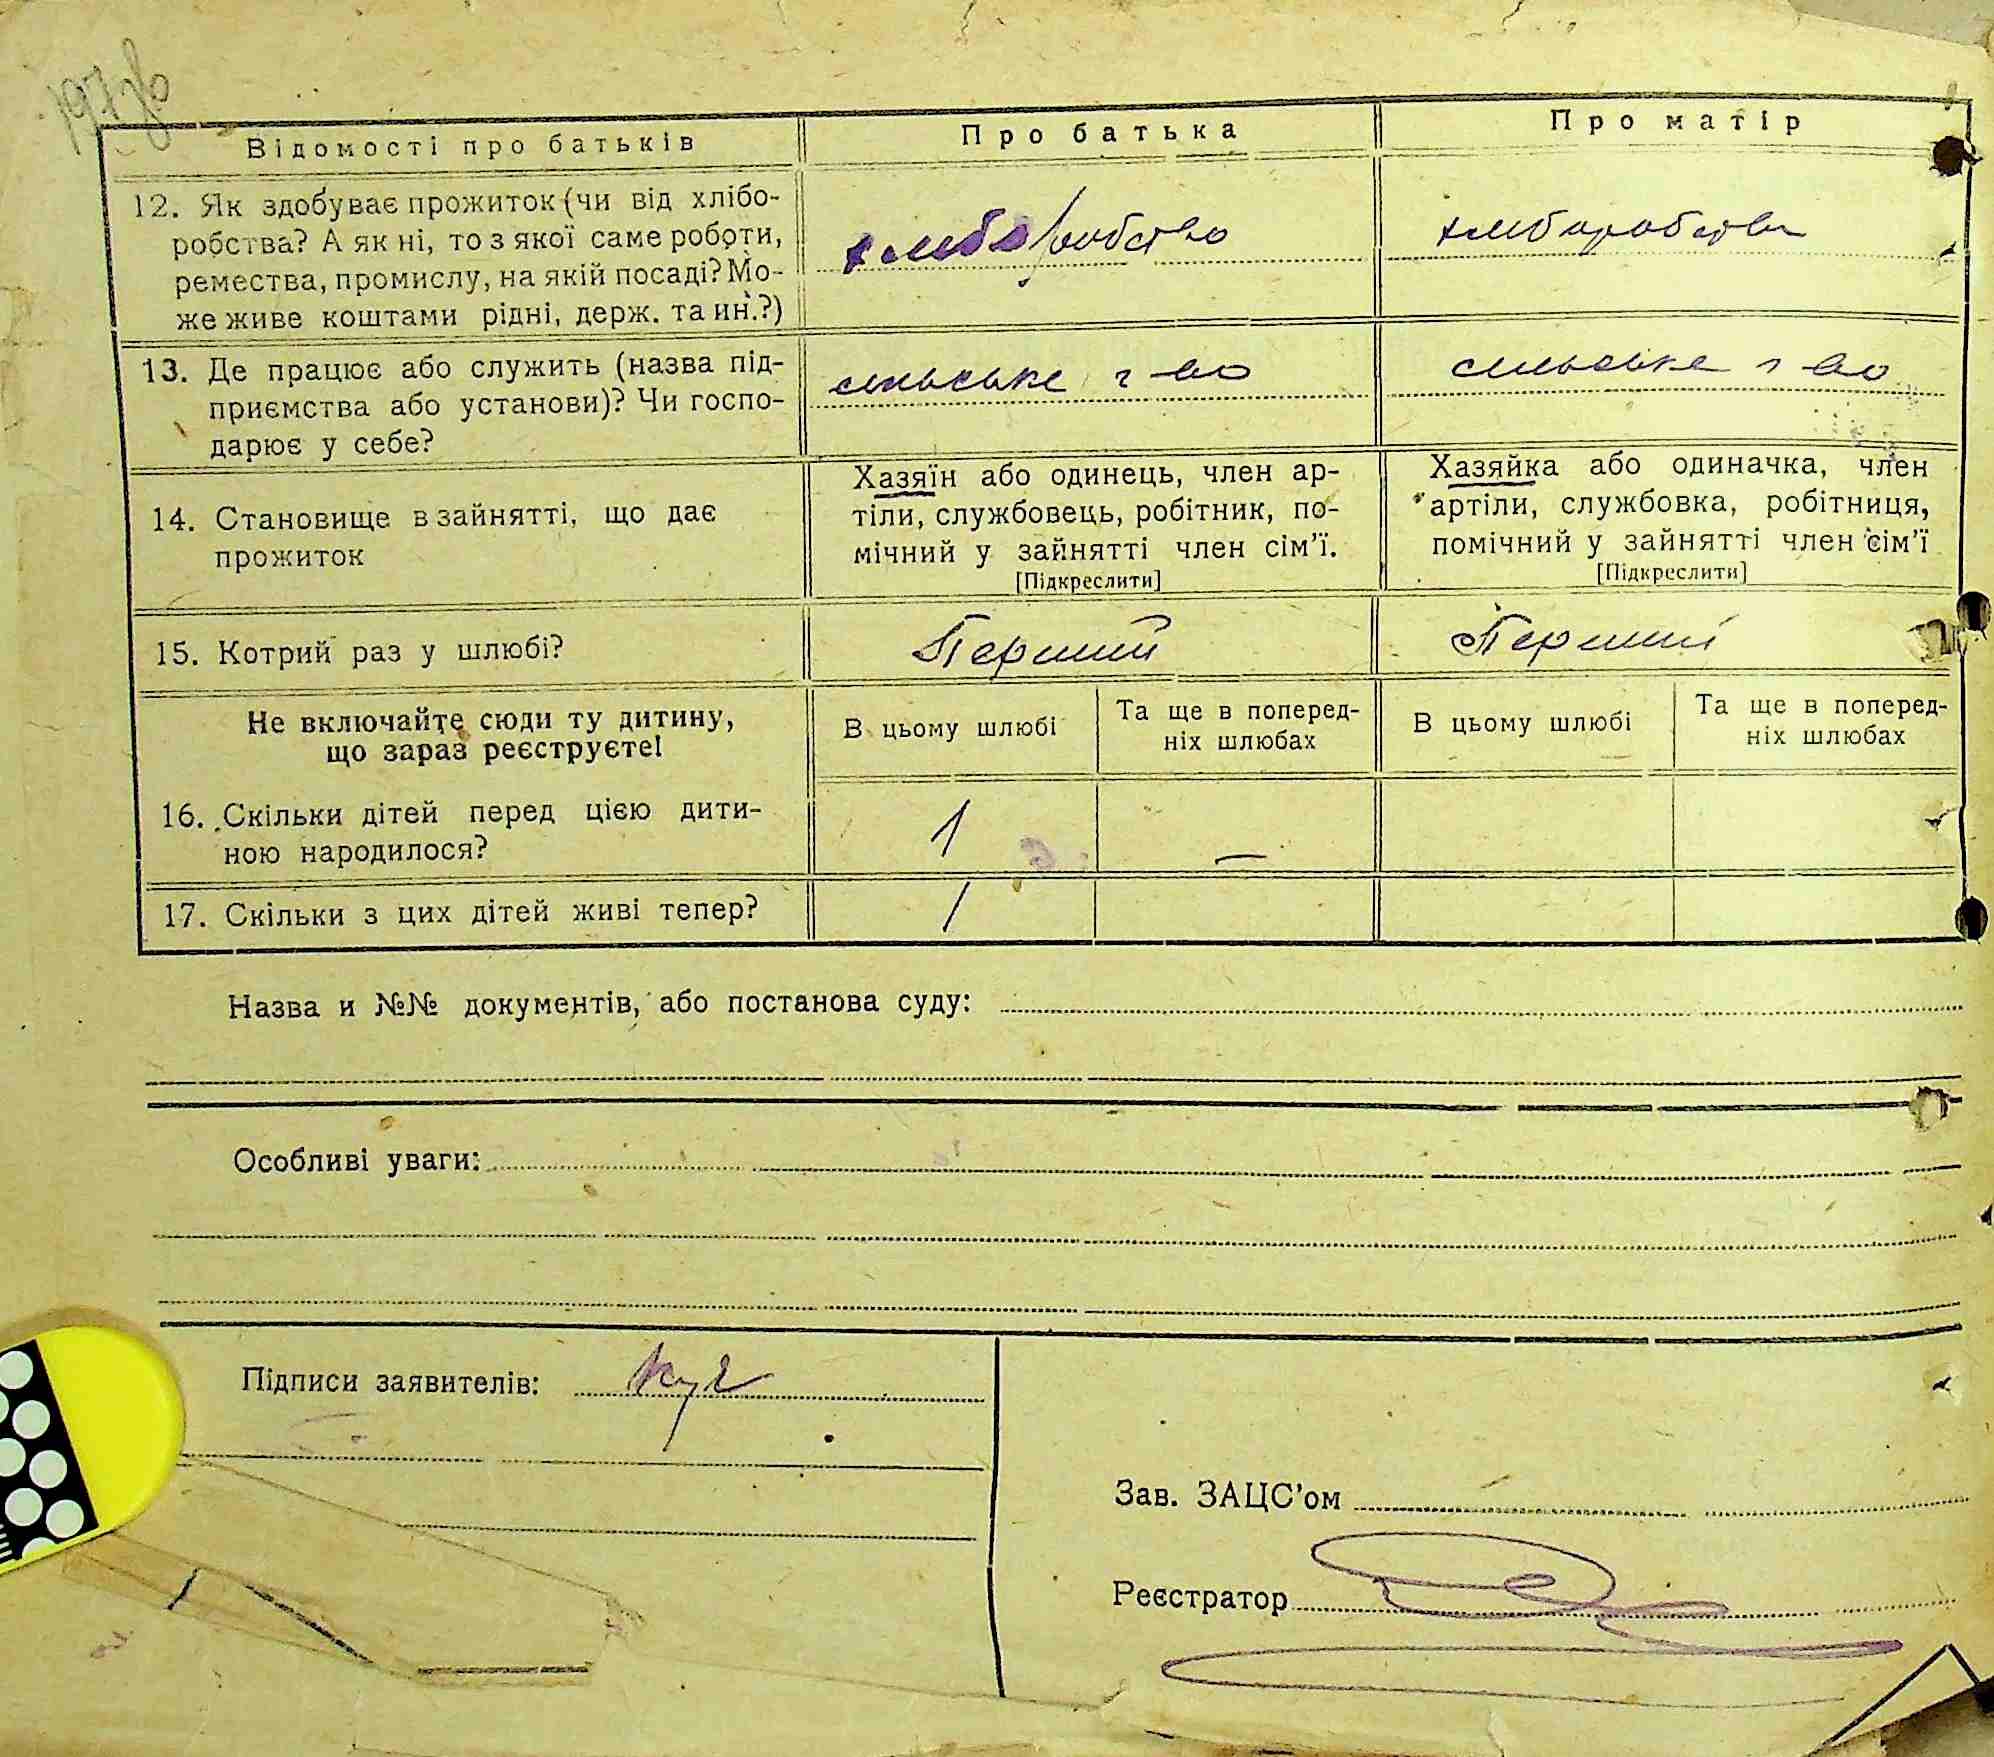 197зв
Відомості про батьків
Про батька
Про матір
12. Як здобуває прожиток (чи від хлібо-
робства? А як ні, то з якої саме роботи,
ремества, промислу, на якій посаді? Мо-
же живе коштами рідні, держ. та ин.?)
хліборобство
хліборобство
13. Де працює або служить (назва під-
приємства або установи)? Чи госпо-
дарює у себе?
сільське г-во
сільське г-во
14. Становище в зайнятті, що дає
прожиток
Хазяїн або одинець, член ар-
тіли, службовець, робітник, по-
мічний у зайнятті член сім’ї.
[Підкреслити]
Хазяйка або одиначка, член
артіли, службовка, робітниця,
помічний у зайнятті член сім’ї
[Підкреслити]
15. Котрий раз у шлюбі?
Перший
Перший
Не включайте сюди ту дитину,
що зараз реєструєте!
В цьому шлюбі
Та ще в поперед-
ніх шлюбах
В цьому шлюбі
Та ще в поперед-
ніх шлюбах
16. Скільки дітей перед цією дити-
ною народилося?
1
—
17. Скільки з цих дітей живі тепер?
1
Назва и №№ документів, або постанова суду:
Особливі уваги:
Підписи заявителів:
Зав. ЗАЦС’ом
Реєстратор